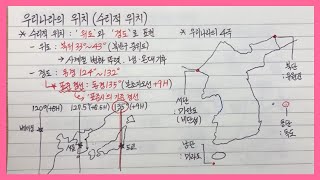 우리나라의 위치 (수리적 위치)
* 수리적 위치 : '위도'와 '경도'로 표현
- 위도 : 북위 33°~43° (북반구 중위도)
→ 사계절 변화 뚜렷, 냉·온대 기후
- 경도 : 동경 124°~132°
* 표준 경선 : 동경 135° (
+9H)
120°(+8H)
127.5°(+8.5H)
135°(+9H)
베이징
서울
도쿄
* 우리나라의 4극
북단
: 유원진
서단
: 마안도
동단
: 독도
남단
: 마라도